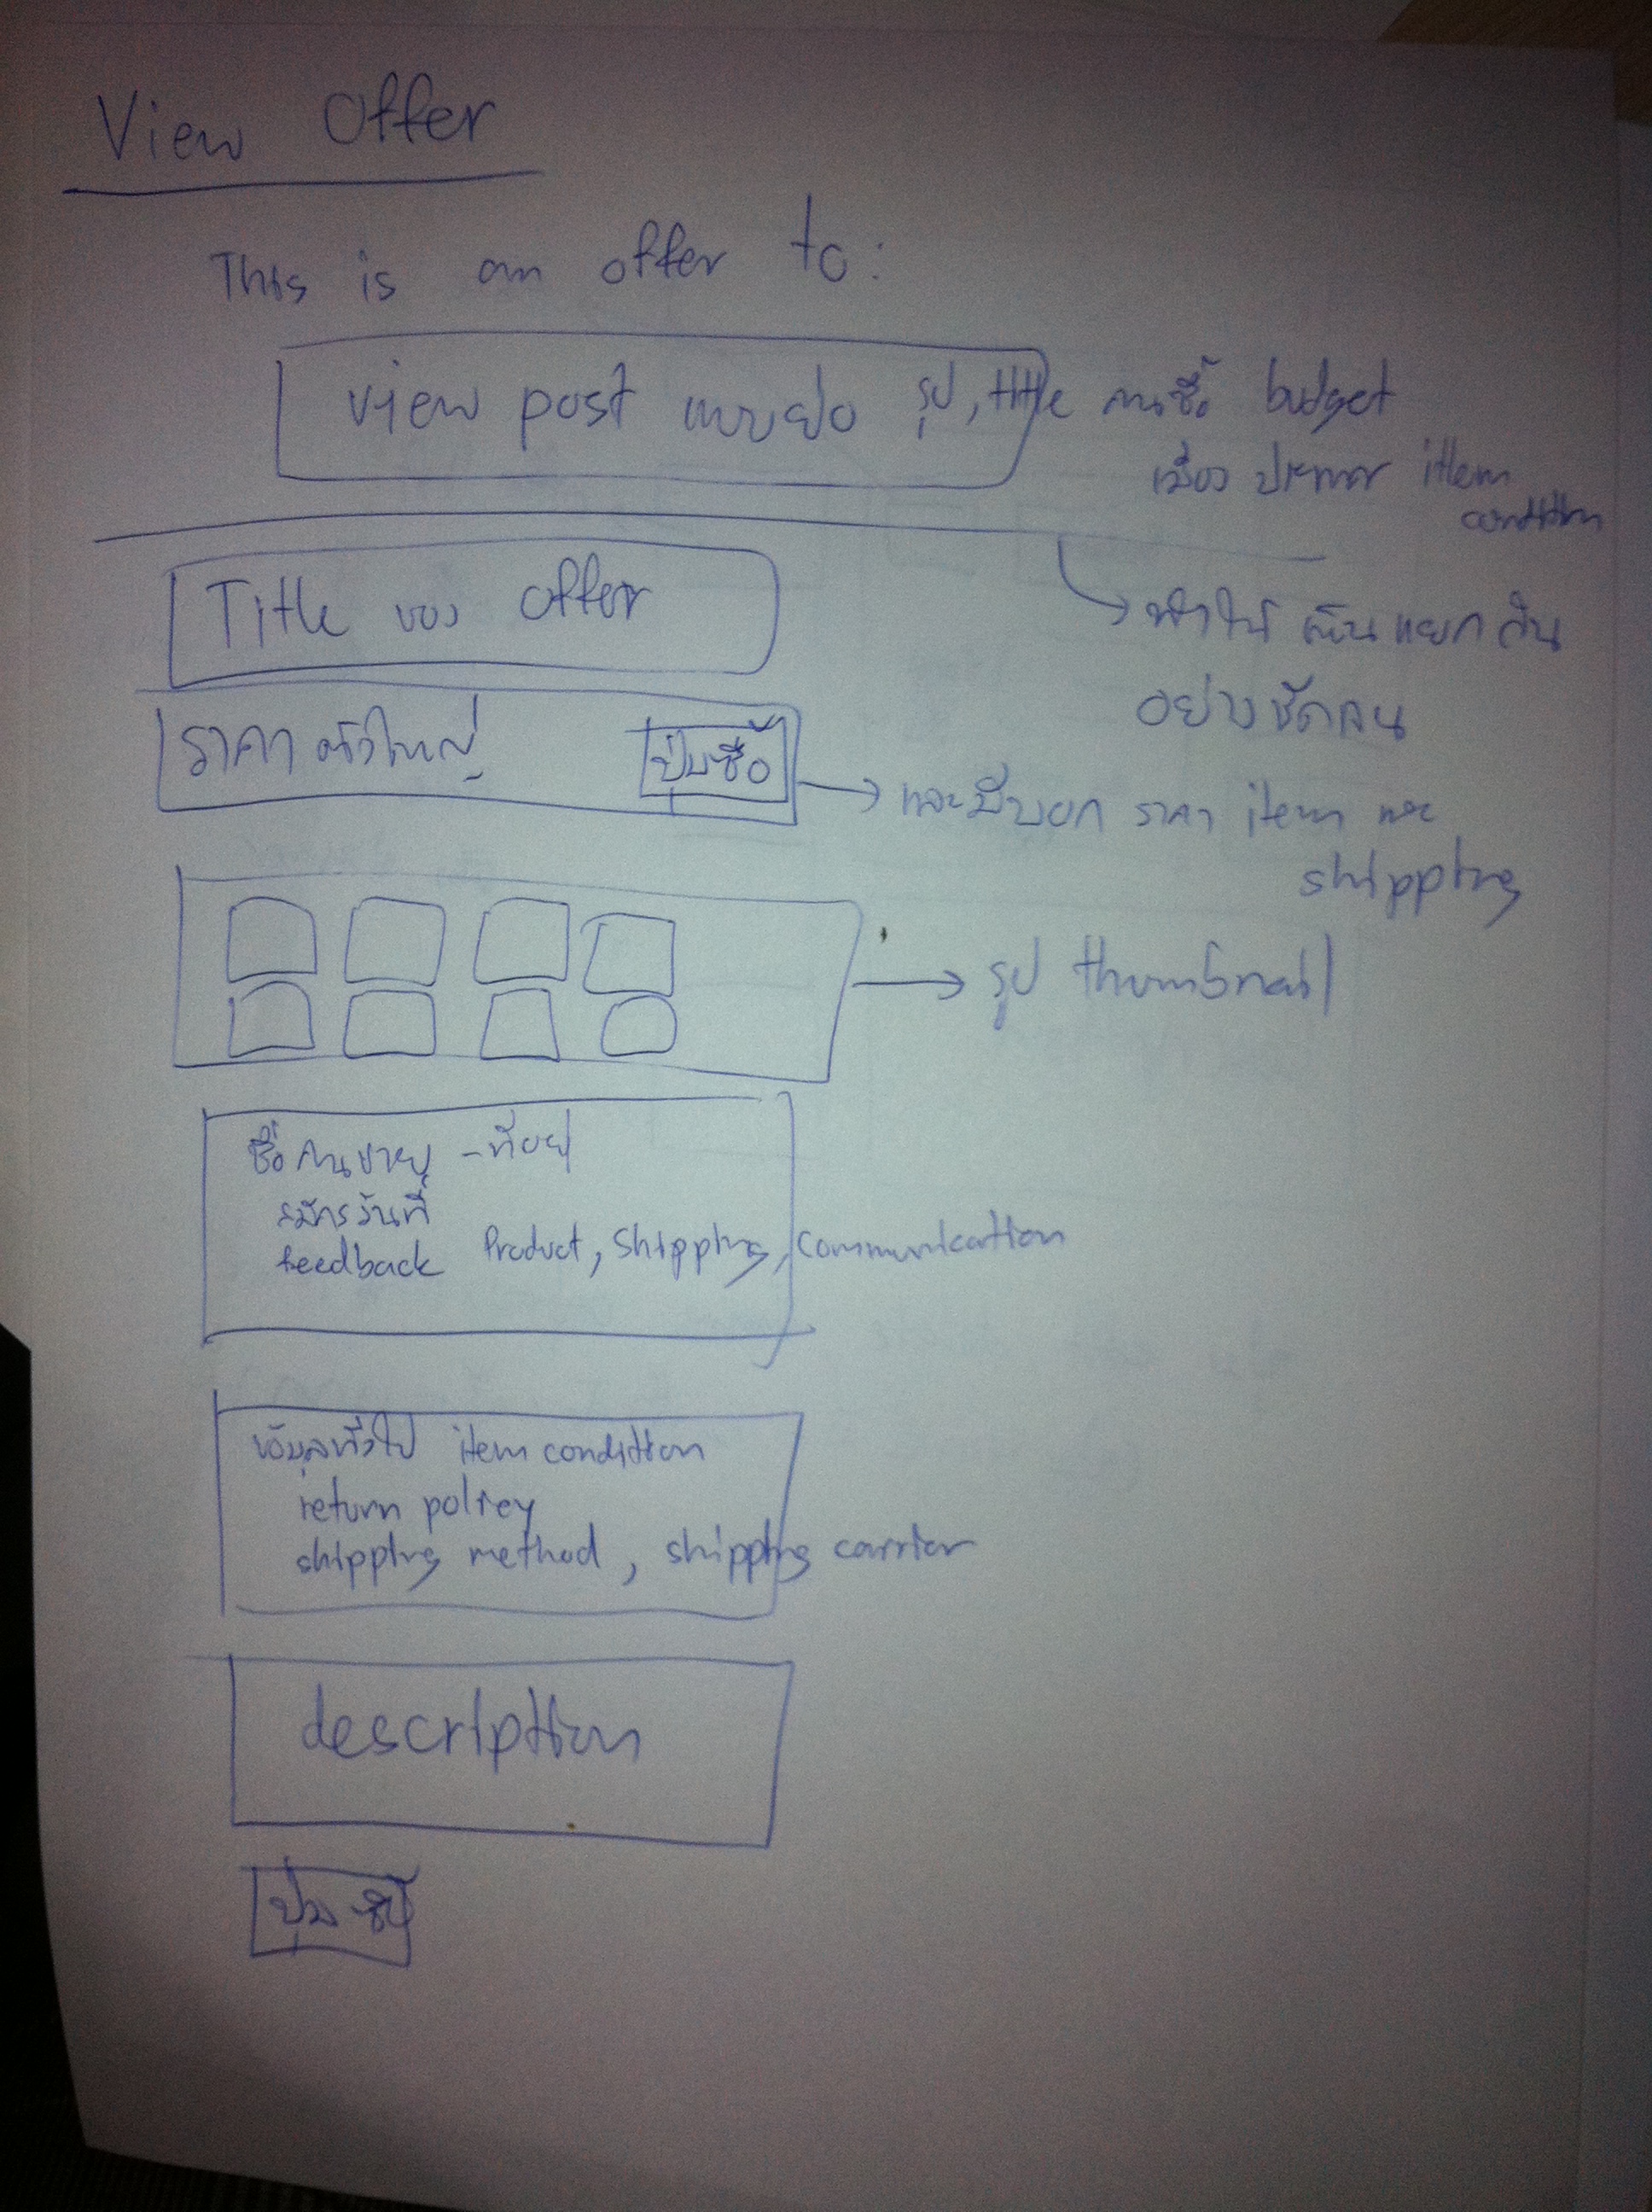 View Offer
This is an offer to:
view post แบบย่อ รูป, title คนซื้อ budget
เมือง ประเทศ item
condition
Title ของ offer
ทำให้เห็นแยกกัน
อย่างชัดเจน
ราคาตัวใหญ่ ปุ่มซื้อ
และมีบอก ราคา item และ
shipping
รูป thumbnail
ชื่อคนขาย - ที่อยู่
สมัครวันที่
feedback Product, Shipping, Communication
ข้อมูลทั่วไป item condition
return policy
shipping method, shipping carrier
description
ปุ่มซื้อ